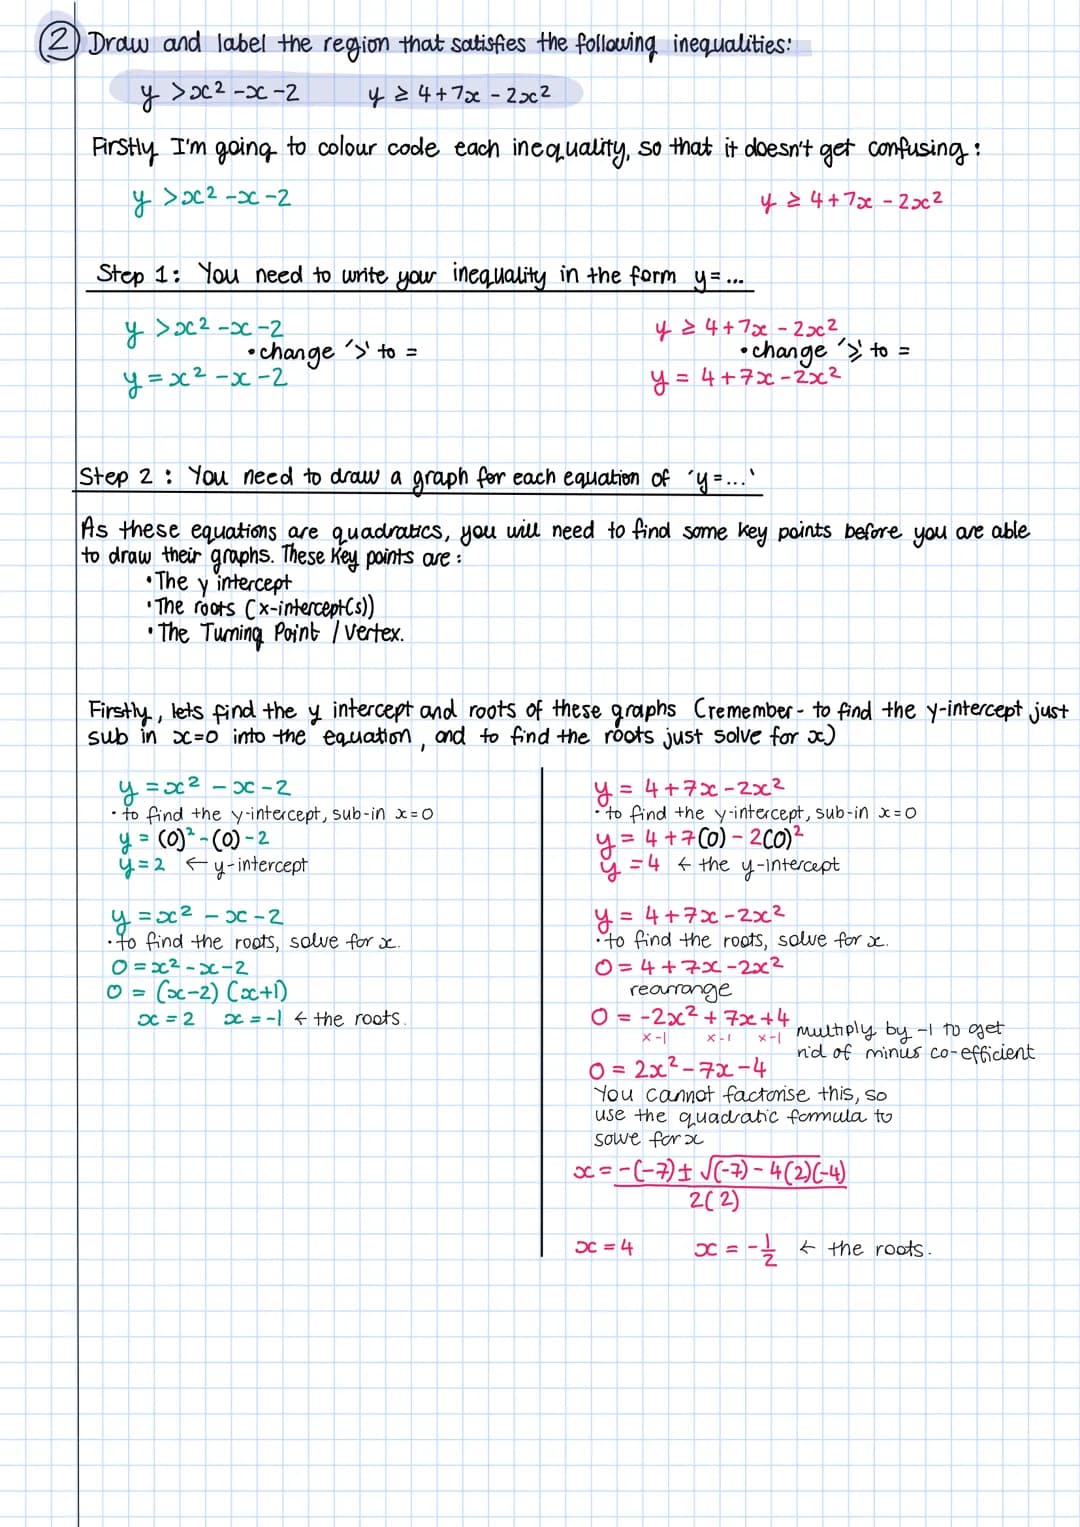 ② Draw and label the region that satisfies the following inequalities:
y > x² - x - 2    y ≥ 4 + 7x - 2x²
Firstly I'm going to colour code each inequality, so that it doesn't get confusing:
y > x² - x - 2    y ≥ 4 + 7x - 2x²
Step 1: You need to write your inequality in the form y = ...
y > x² - x - 2
• change '>' to =
y = x² - x - 2
y ≥ 4 + 7x - 2x²
• change '≥' to =
y = 4 + 7x - 2x²
Step 2: You need to draw a graph for each equation of 'y = ...'
As these equations are quadratics, you will need to find some key points before you are able
to draw their graphs. These key points are:
• The y intercept
• The roots (x-intercept(s))
• The Turning Point / Vertex.
Firstly, lets find the y intercept and roots of these graphs (remember - to find the y-intercept just
sub in x=0 into the equation, and to find the roots just solve for x)
y = x² - x - 2
• to find the y-intercept, sub-in x=0
y = (0)² - (0) - 2
y = 2 ← y-intercept
y = x² - x - 2
• to find the roots, solve for x.
0 = x² - x - 2
0 = (x-2) (x+1)
x = 2    x = -1 ← the roots.
y = 4 + 7x - 2x²
• to find the y-intercept, sub-in x=0
y = 4 + 7(0) - 2(0)²
y = 4 ← the y-intercept
y = 4 + 7x - 2x²
• to find the roots, solve for x.
0 = 4 + 7x - 2x²
rearrange
0 = -2x² + 7x + 4
x -1    x -1    x -1
multiply by -1 to get
rid of minus co-efficient
0 = 2x² - 7x - 4
You cannot factorise this, so
use the quadratic formula to
solve for x
x = -(-7) ± √(-7) - 4(2)(-4)
2(2)
x = 4    x = -1/2 ← the roots.